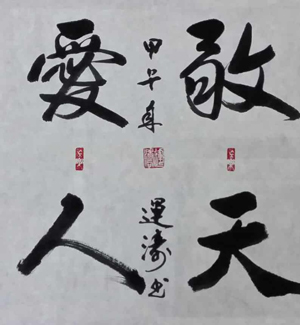 敬天
愛人
甲午年
運濤书